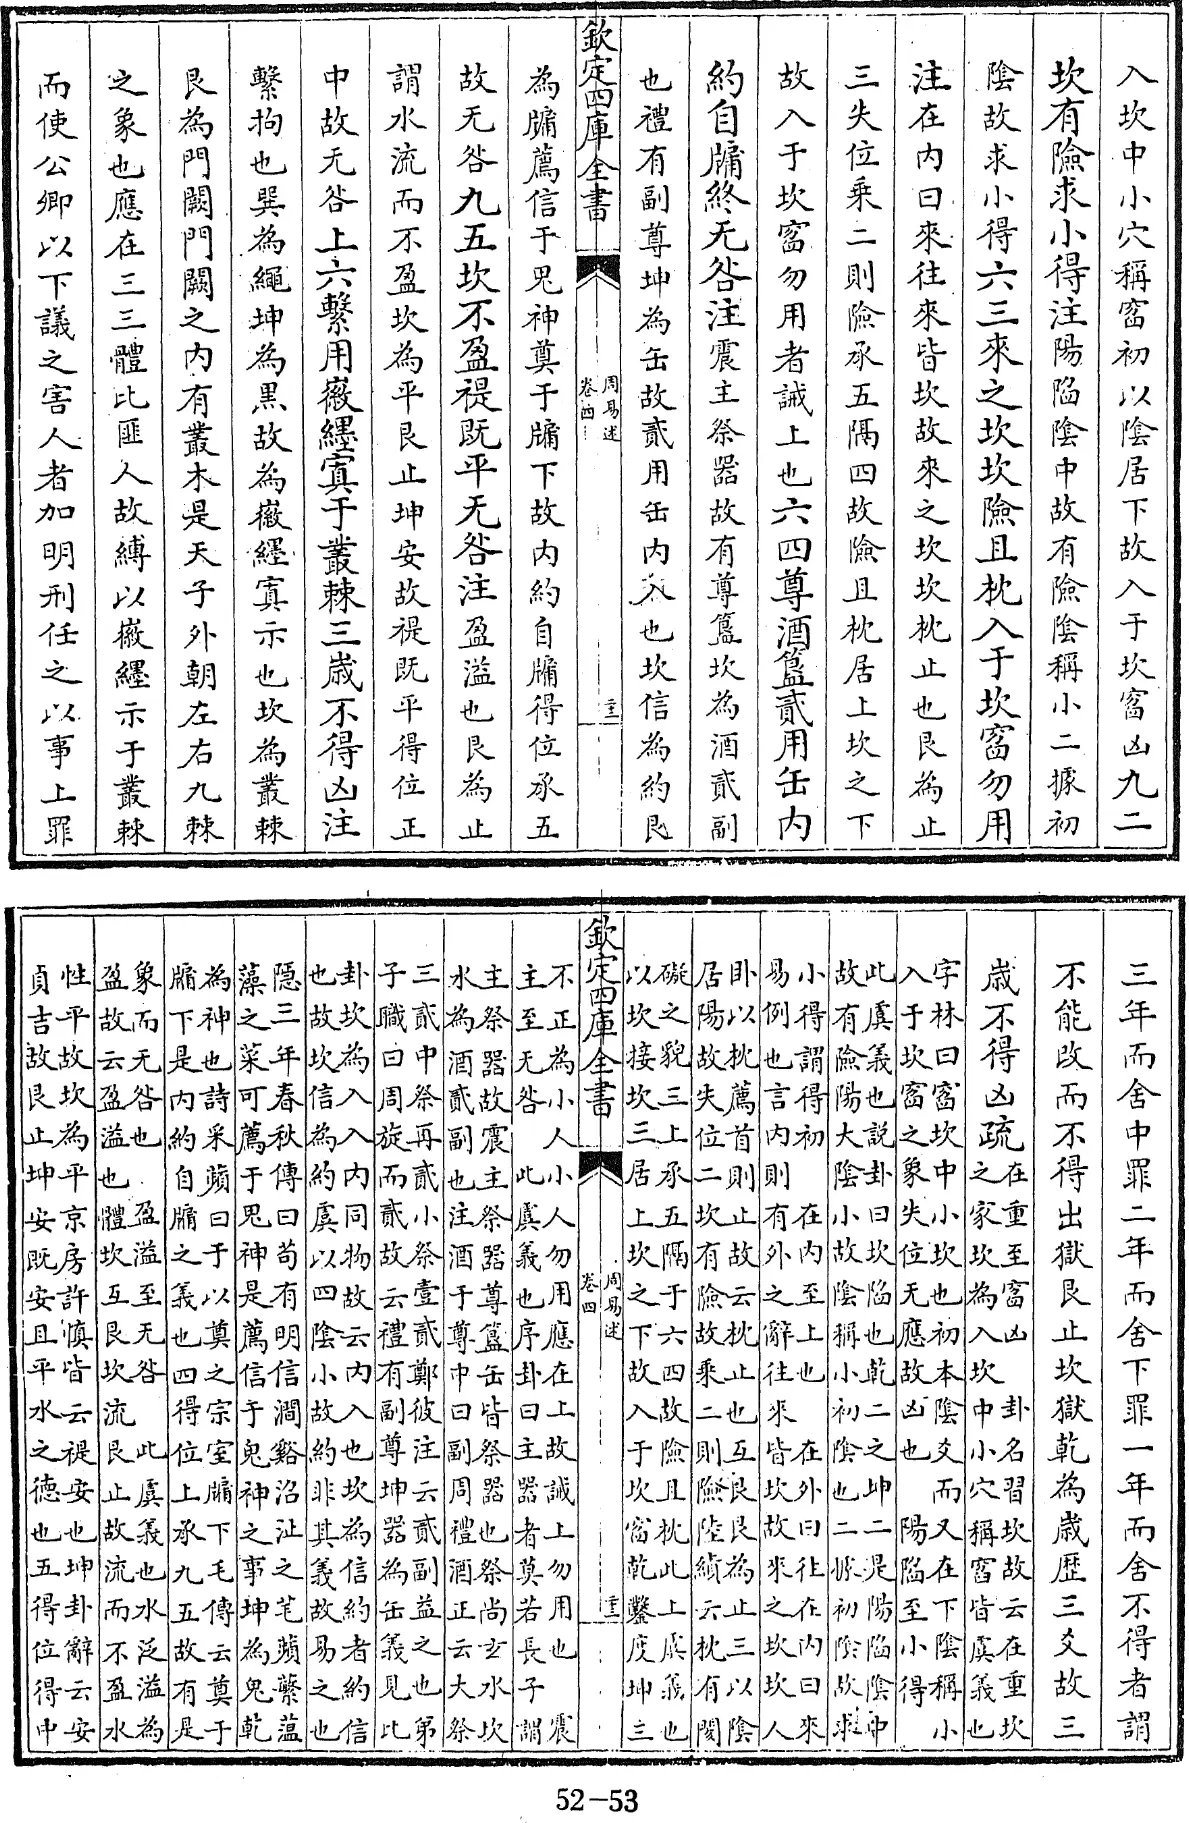 入坎中小穴稱窞初以陰居下故入于坎窞凶九二
坎有險求小得注陽陷陰中故有險陰稱小二據初
陰故求小得六三來之坎坎險且枕入于坎窞勿用
注在內曰來往來皆坎故來之坎坎枕止也艮為止
三失位乘二則險承五隔四故險且枕居上坎之下
故入于坎窞勿用者誡上也六四尊酒簋貳用缶內
約自牖終无咎注震主祭器故有尊簋坎為酒貳副
也禮有副尊坤為缶故貳用缶內入也坎信為約艮
欽定四庫全書
周易述
卷四
為牖薦信于鬼神奠于牖下故內約自牖得位承五
故无咎九五坎不盈禔既平无咎注盈溢也艮為止
謂水流而不盈坎為平艮止坤安故禔既平得位正
中故无咎上六繫用徽纆寘于叢棘三歲不得凶注
繫拘也巽為繩坤為黑故為徽纆寘示也坎為叢棘
艮為門闕門闕之內有叢木是天子外朝左右九棘
之象也應在三三體比匪人故縛以徽纆示于叢棘
而使公卿以下議之害人者加明刑任之以事上罪
三年而舍中罪二年而舍下罪一年而舍不得者謂
不能改而不得出獄艮止坎獄乾為歲歷三爻故三
歲不得凶疏
在重至窞凶　卦名習坎故云在重坎
之家坎為入坎中小穴稱窞皆虞義也
字林曰窞坎中小坎也初本陰爻而又在下陰稱小
入于坎窞之象失位无應故凶也　陽陷至小得
此虞義也說卦曰坎陷也乾二之坤二是陽陷陰中
故有險陽大陰小故陰稱小初陰也二據初陰故求
小得謂得初　在內至上也　在外曰往在內曰來
易例也言內則有外之辭往來皆坎故來之坎坎人
卧以枕薦首則止故云枕止也互艮艮為止三以陰
居陽故失位二坎有險故乘二則險陸績云枕有閡
礙之貌三上承五隔于六四故險且枕此上虞義也
以坎接坎三居上坎之下故入于坎窞乾鑿度坤主
欽定四庫全書
周易述
卷四
不正為小人小人勿用應在上故誡上勿用也　震
主至无咎　此虞義也序卦曰主器者莫若長子謂
主祭器故震主祭器尊簋缶皆祭器也祭尚玄水坎
水為酒貳副也注酒于尊中曰副周禮酒正云大祭
三貳中祭再貳小祭壹貳鄭彼注云貳副益之也弟
子職曰周旋而貳故云禮有副尊坤器為缶義見此
卦坎為入入內同物故云內入也坎為信約者約信
也故坎信為約虞以四陰小故約非其義故易之也
隱三年春秋傳曰苟有明信澗谿沼沚之毛蘋蘩薀
藻之菜可薦于鬼神是薦信于鬼神之事坤為鬼乾
為神也詩采蘋曰于以奠之宗室牖下毛傳云奠于
牖下是內約自牖之義也四得位上承九五故有是
象而无咎也　盈溢至无咎　此虞義也水泛溢為
盈故云盈溢也體坎互艮坎流艮止故流而不盈水
性平故坎為平京房許慎皆云禔安也坤卦辭云安
貞吉故艮止坤安既安且平水之德也五得位得中
52-53